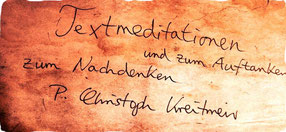 Textmeditationen
und zum Auftanken
zum Nachdenken
P. Christoph Kreitmeir